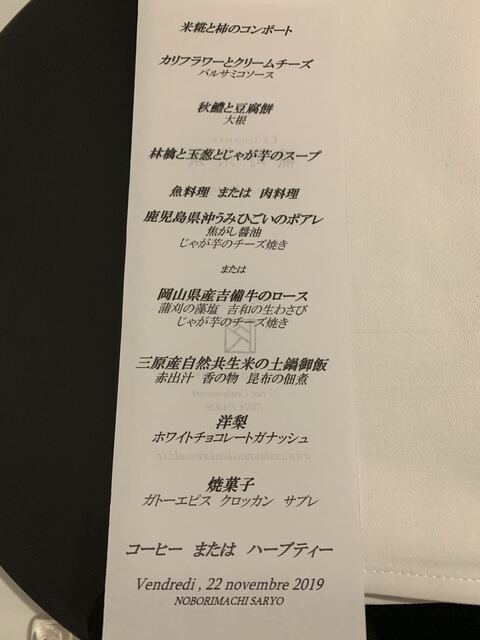 米糀と柿のコンポート
カリフラワーとクリームチーズ
バルサミコソース
秋鱧と豆腐餅
大根
林檎と玉葱とじゃが芋のスープ
魚料理 または 肉料理
鹿児島県沖うみひごいのポアレ
焦がし醤油
じゃが芋のチーズ焼き
または
岡山県産吉備牛のロース
蒲刈の藻塩 吉和の生わさび
じゃが芋のチーズ焼き
三原産自然共生米の土鍋御飯
赤出汁 香の物 昆布の佃煮
洋梨
ホワイトチョコレートガナッシュ
焼菓子
ガトーエピス クロッカン サブレ
コーヒー または ハーブティー
Vendredi , 22 novembre 2019
NOBORIMACHI SARYO